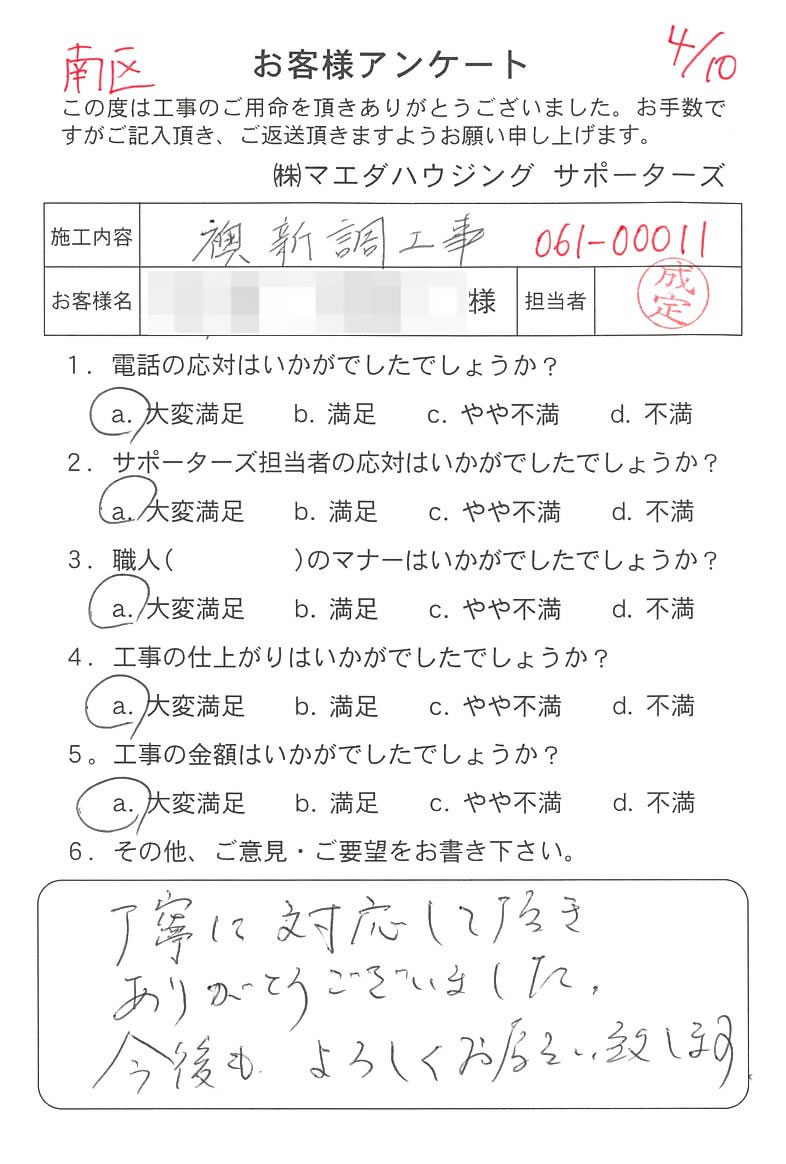 南区
お客様アンケート
4/10
この度は工事のご用命を頂きありがとうございました。お手数で
すがご記入頂き、ご返送頂きますようお願い申し上げます。
㈱マエダハウジング サポーターズ
施工内容 襖新調工事 061-00011
お客様名 様 担当者 成定
1. 電話の応対はいかがでしたでしょうか？
a. 大変満足 b. 満足 c. やや不満 d. 不満
2. サポーターズ担当者の応対はいかがでしたでしょうか？
a. 大変満足 b. 満足 c. やや不満 d. 不満
3. 職人( )のマナーはいかがでしたでしょうか？
a. 大変満足 b. 満足 c. やや不満 d. 不満
4. 工事の仕上がりはいかがでしたでしょうか？
a. 大変満足 b. 満足 c. やや不満 d. 不満
5。工事の金額はいかがでしたでしょうか？
a. 大変満足 b. 満足 c. やや不満 d. 不満
6. その他、ご意見・ご要望をお書き下さい。
丁寧に対応して頂き
ありがとうございました。
今後も よろしくお願い致します